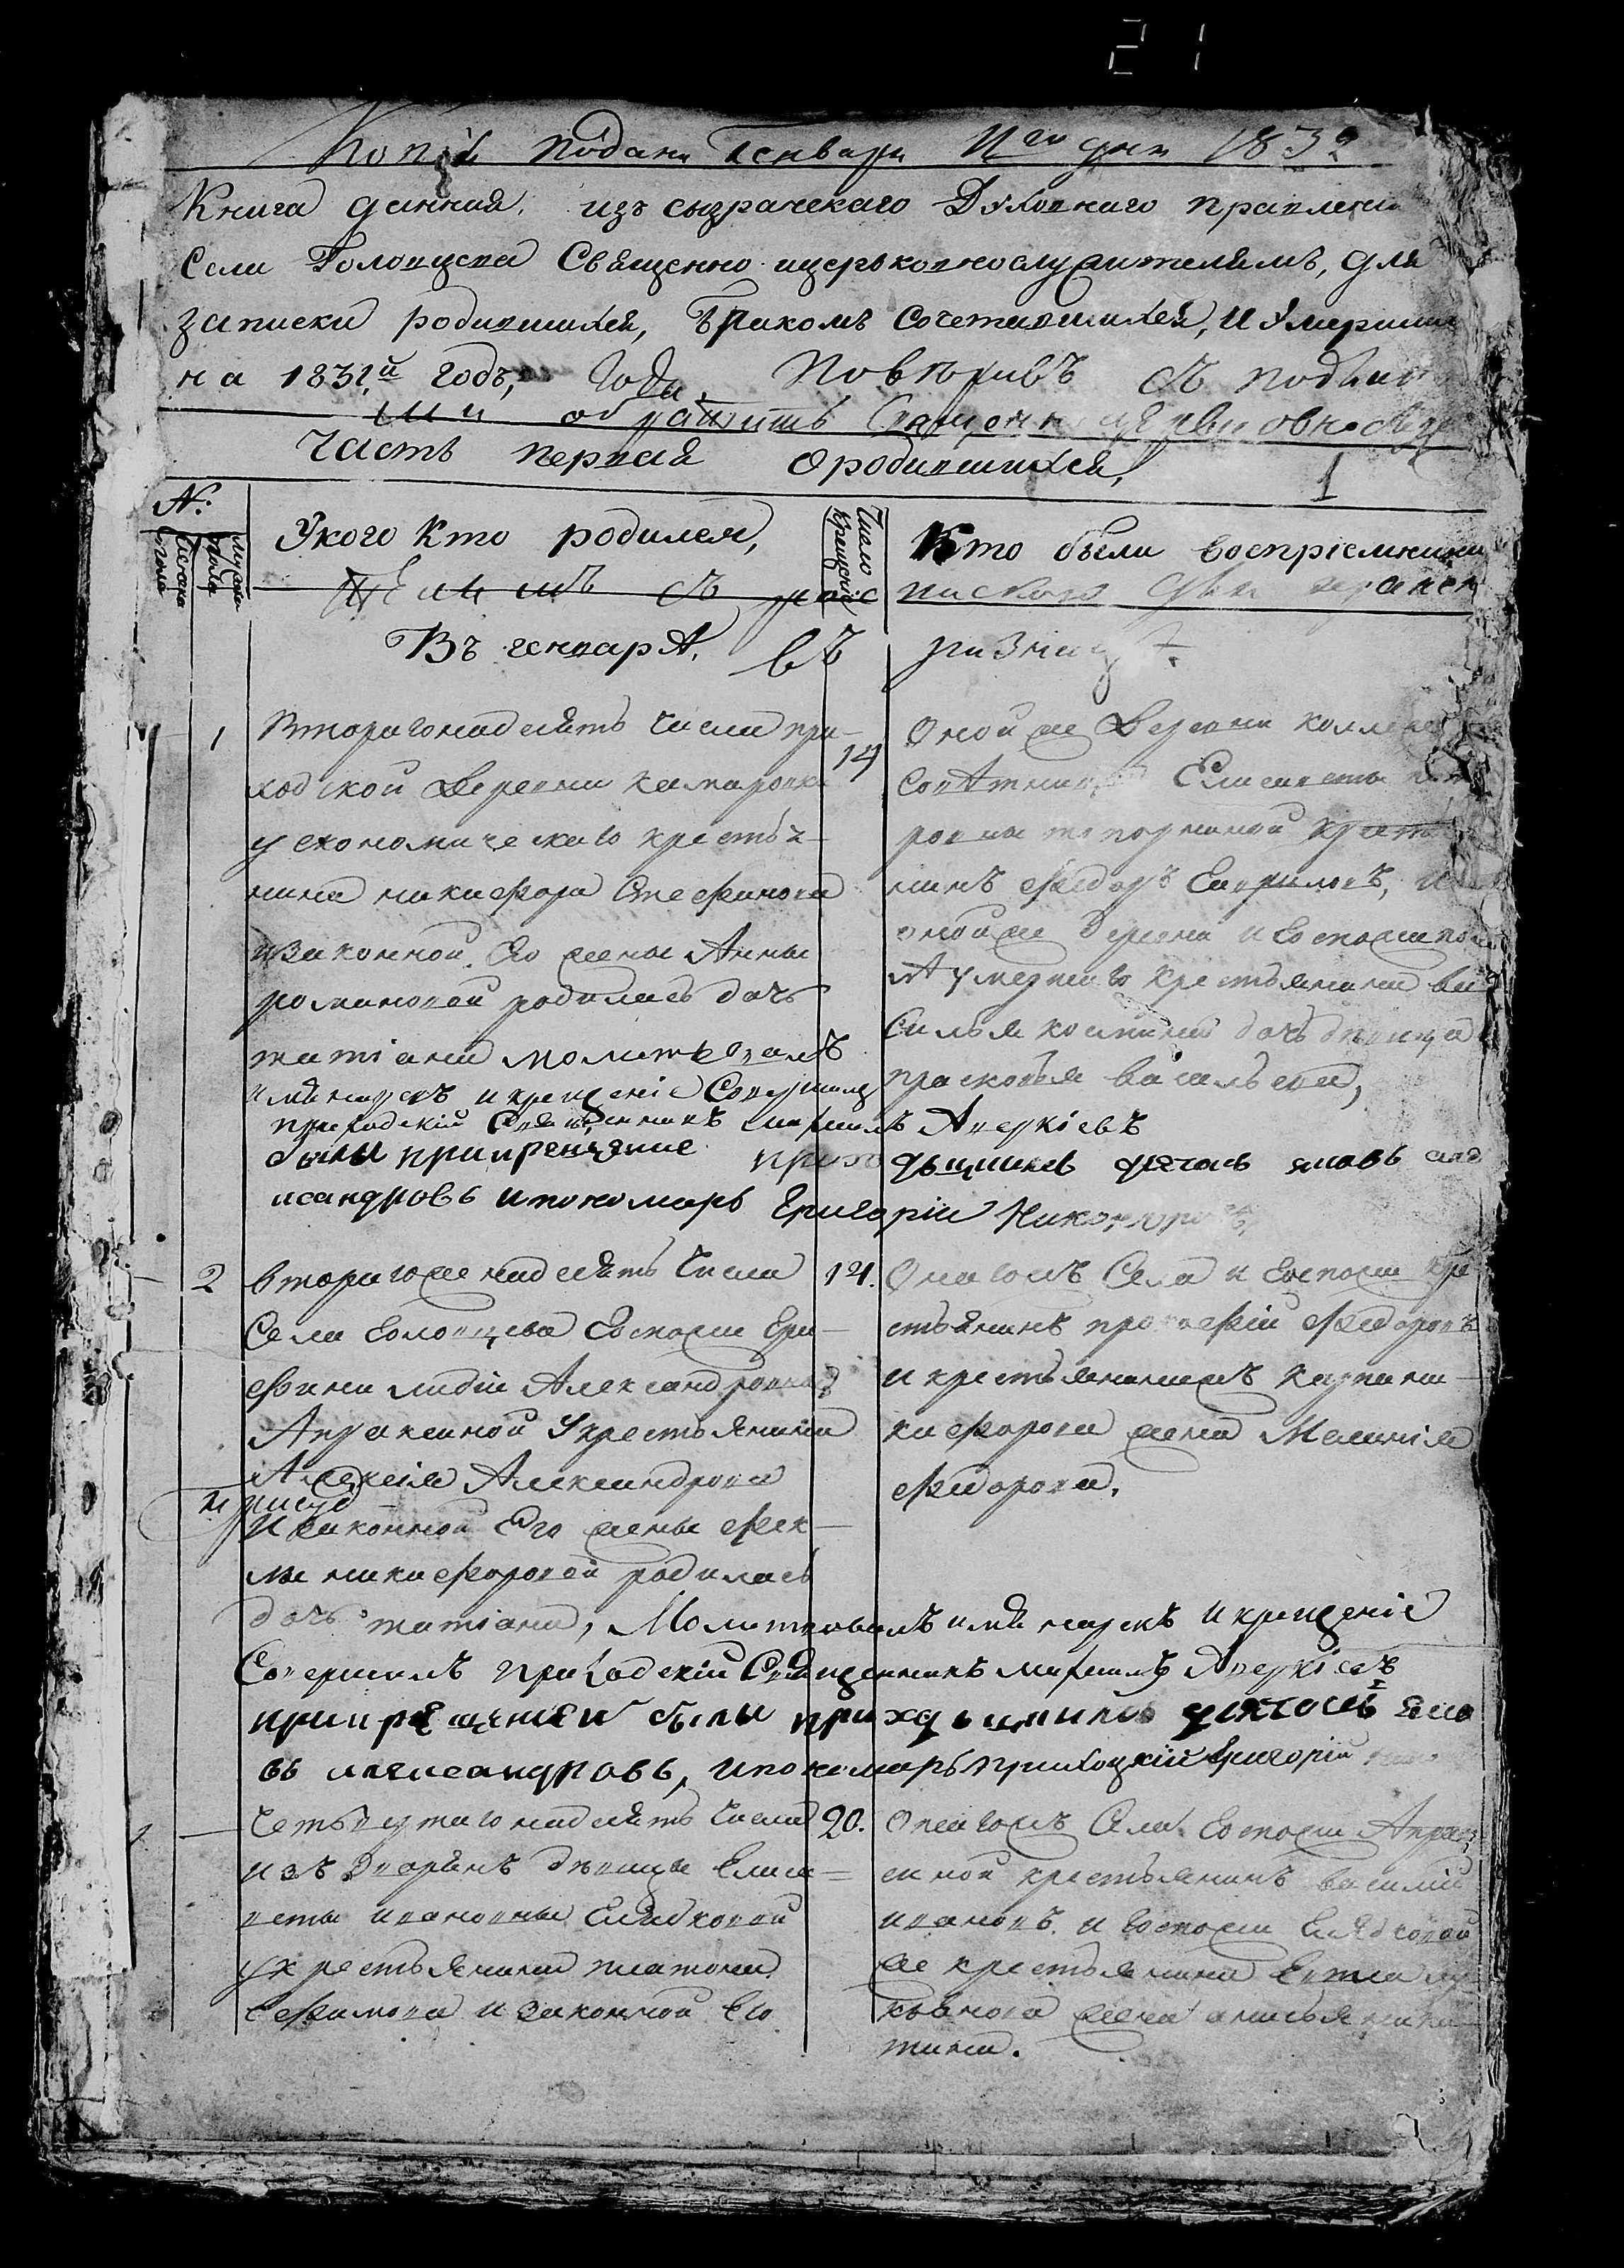 21
Копія подана Генваря 11го дня 1832
Книга данная изъ сызранскаго Духовнаго правлени
Села Головцева Священно ицерьковнослужителямъ, для
записки родившихся, Бракомъ Сочетавшихся, и Умерших
на 1831й годъ, года. Повѣривъ съ подлин
обратить Священно церковно
Часть первая Ородившихся, 1
№:
мужеска пола
женска пола
Укого Кто родился,
Число крещенія
Кто были воспріемники
съ
Въ генварѣ. въ ризницу
1 Втораго надесять числа при-
ходской Деревни камаровки
у економическаго крестья-
нина никифора Стефанова
изаконной Его жены Анны
романовой родилась дочь
татіана молитвовалъ
имянарекъ и крещеніе Совершилъ
приходскій Священникъ михаилъ Аверкіевъ
были прикрещение приходьщикие дячокъ яковъ але
исандровъ ипономарь Григоріи Никоноровъ,
14 Оной же Деревни коллеж
Совѣтницы Елисаветы пет
ровны топорниной крестья
нинъ Федоръ Гавриловъ, и
оной же деревни и Госпожи по
умершаго крестьянина ва
Силья козмина дочь девица
прасковья васильева,
2 втораго же надесять числа
Села Головцева Госпожи Гра-
фини лидіи Александровны
Апраксиной Укрестьянина
Алексія Александрова
И законной Его жены Фек-
лы никифоровой родилась
дочь татіана, Молитвовалъ имя нарекъ и крещеніе
Совершилъ приходскій Священникъ михаилъ Аверкіевъ
прикрещении были приходьщикие дячокъ яко
въ алеисандровъ, ипономарь приходцкій Григорій
14. Онагожъ Села и Госпожи кре
стьянинъ прокофій Федоровъ
и крестьянинажъ карпа ни-
кифорова жена Меланія
Федорова.
Четвертаго надесять числа
изъ Дворянъ девицы Елиса-
веты ивановны Гладковой
укрестьянина платона
Ефимова и законной Его
20. Онагожъ Села Госпожи Апрак
синой крестьянинъ василій
ивановъ и Госпожи Гладковой
же крестьянина Евтиа лу
кьянова жена анисья ники
тина.